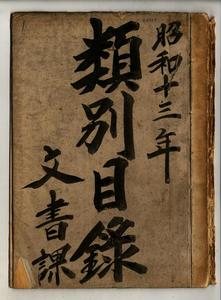 昭和十三年
類別目錄
文書課